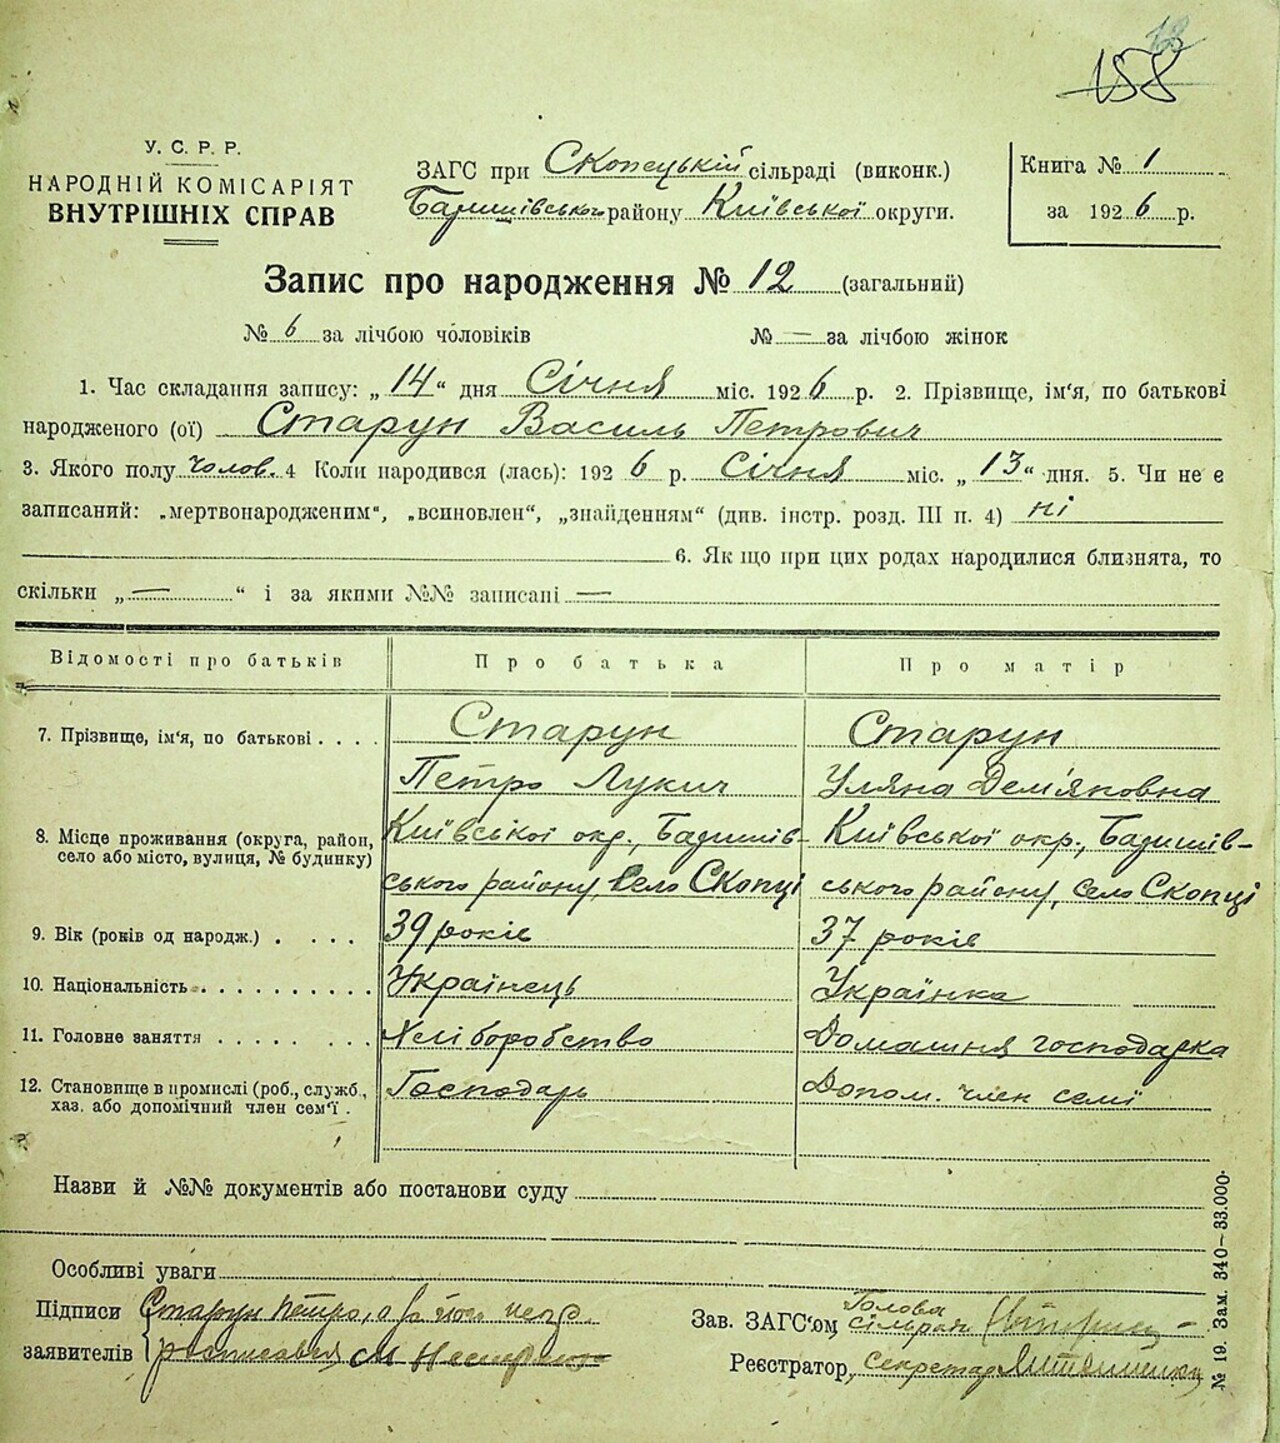 158
У. С. Р. Р.
НАРОДНІЙ КОМІСАРІЯТ
ВНУТРІШНІХ СПРАВ
ЗАГС при Скопецькій сільраді (виконк.)
Баришівського району Київської округи.
Книга № 1
за 1926 р.
Запис про народження № 12 (загальний)
№ 6 за лічбою чоловіків № — за лічбою жінок
1. Час складання запису: „14“ дня Січня міс. 1926 р. 2. Прізвище, ім‘я, по батькові
народженого (ої) Старун Василь Петрович
3. Якого полу Чолов. 4 Коли народився (лась): 1926 р. Січня міс. „13“ дня. 5. Чи не є
записаний: „мертвонародженим“, „всиновлен“, „знайденням“ (див. інстр. розд. III п. 4) ні
6. Як що при цих родах народилися близнята, то
скільки „—“ і за якими №№ записані —
Відомості про батьків Про батька Про матір
7. Прізвище, ім‘я, по батькові . . . . Старун Старун
Петро Лукич Уляна Дем'яновна
8. Місце проживання (округа, район, Київської окр., Баришів- Київської окр., Баришів-
село або місто, вулиця, № будинку) ського району, село Скопці ського району, село Скопці
9. Вік (років од народж.) . . . . 39 років 37 років
10. Національність . . . . . . . . . . Українець Українка
11. Головне заняття . . . . . . . . Хліборобство Домашня господарка
12. Становище в промислі (роб., служб., Господарь Допом. член семї
хаз. або допомічний член сем‘ї .
Назви й №№ документів або постанови суду
Особливі уваги
Підписи Старун Петро, а за його непр.
заявителів росписався
Зав. ЗАГС‘ом Голова сільради
Реєстратор, секретар
№ 19. Зам. 340—33.000.